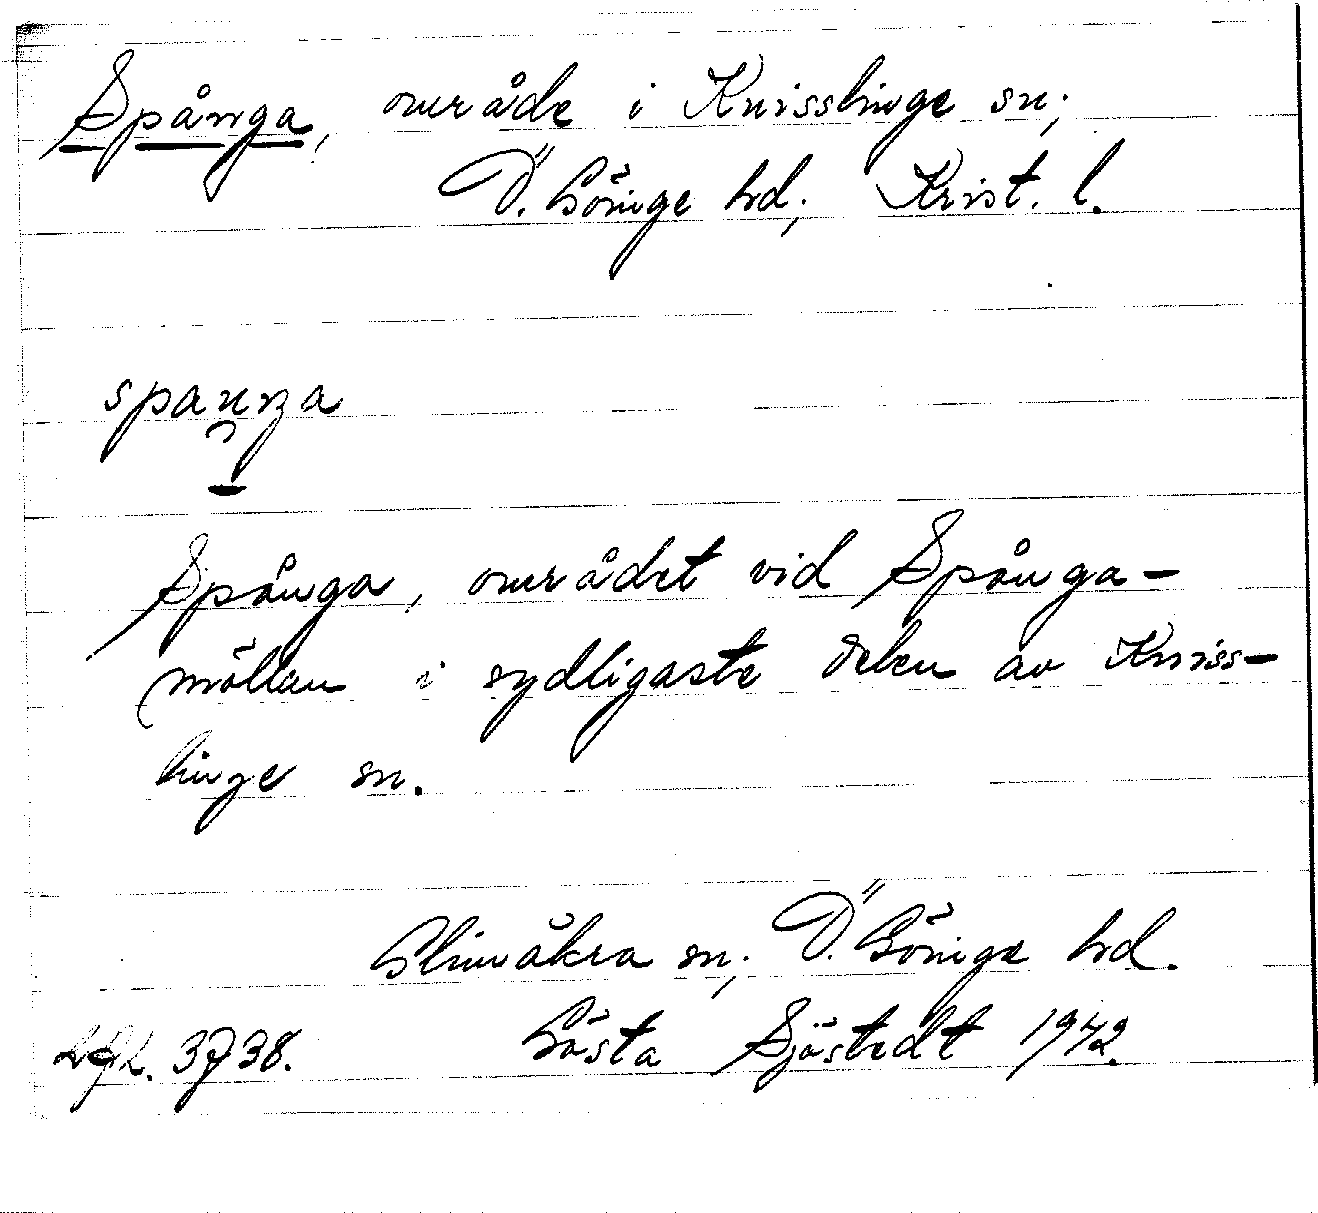 Spånga, område i Knisslinge sn;
Ö. Göinge hd; Krist. l.
spanga
Spånga, området vid Spånga-
möllan i sydligaste delen av Kniss-
linge sn.
Glimåkra sn; Ö. Göinge hd.
3738. Gösta Sjöstedt 1942.